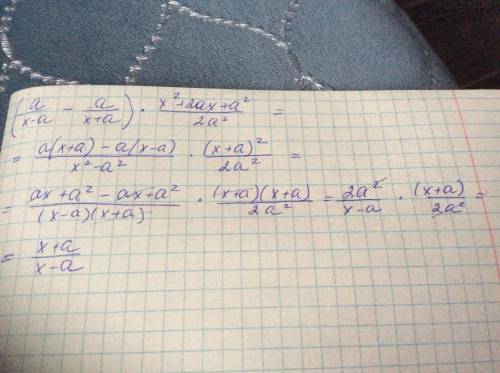 (a/(x-a) - a/(x+a)) · (x²+2ax+a²)/(2a²) =
= (a(x+a) - a(x-a))/(x²-a²) · (x+a)²/(2a²) =
= (ax+a²-ax+a²)/((x-a)(x+a)) · ((x+a)(x+a))/(2a²) = 2a²/(x-a) · (x+a)/(2a²) =
= (x+a)/(x-a)